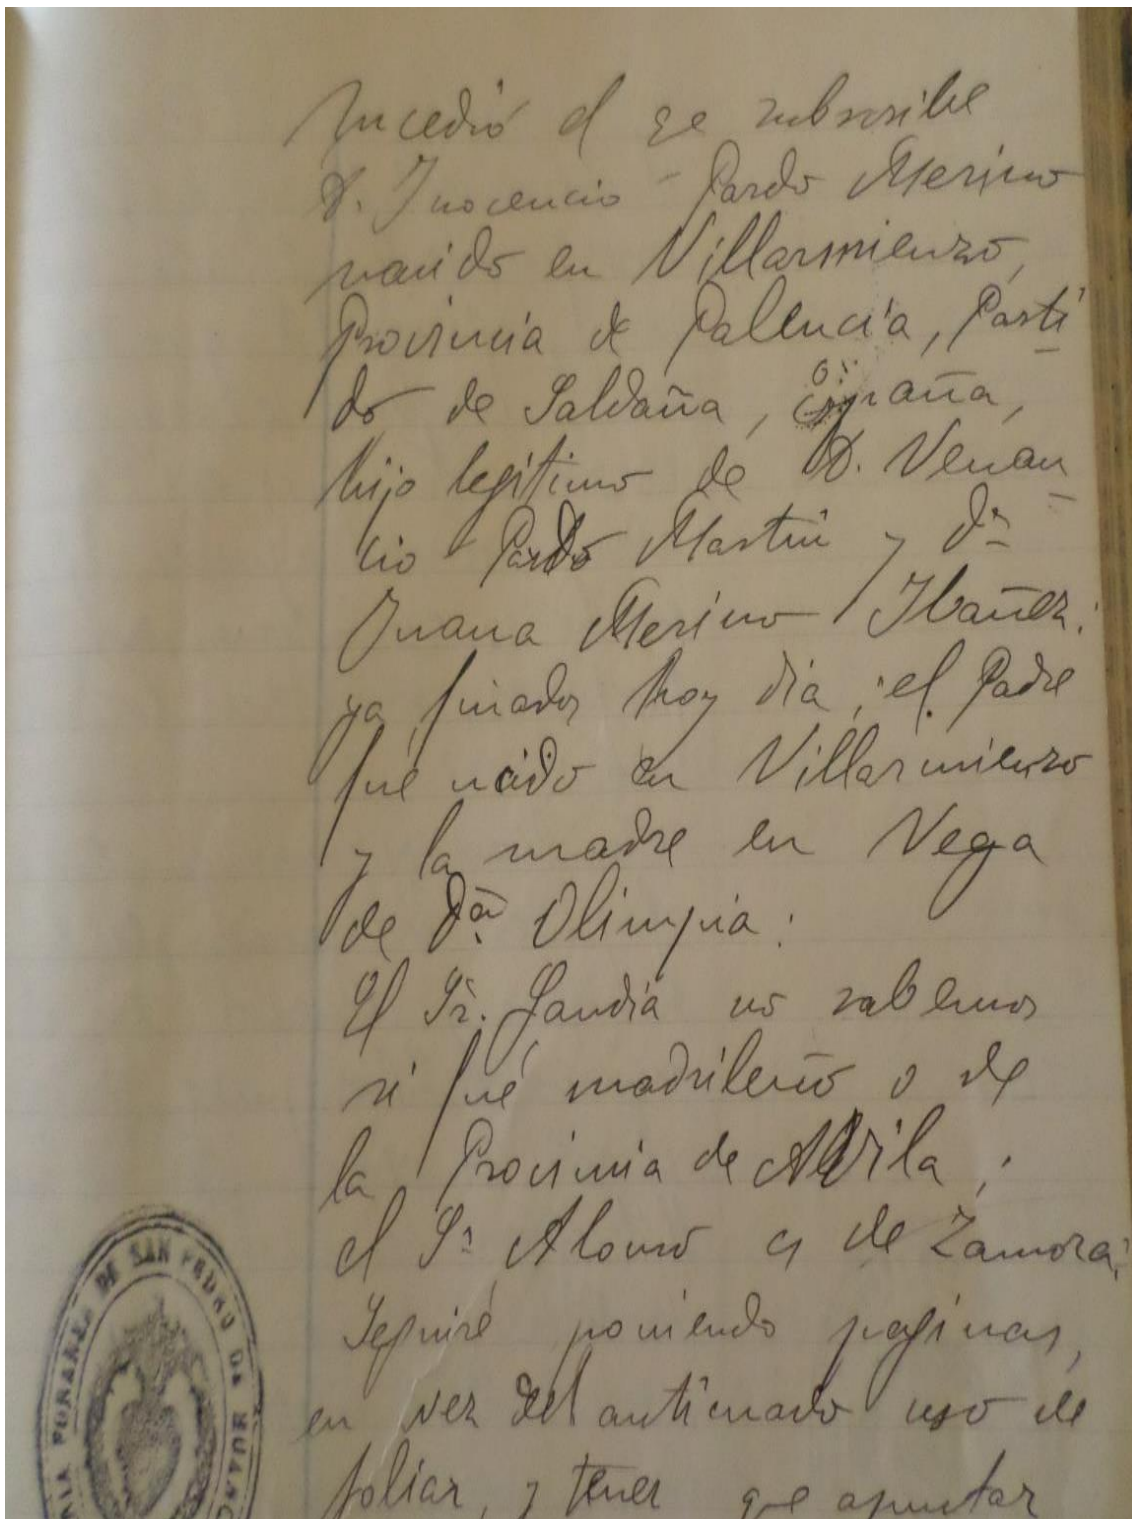 sucedió el qe subscribe
D. Inocencio Pardo Merino
nacido en Villarmienzo,
Provincia de Palencia, Parti
do de Saldaña, España,
hijo legitimo de D. Venan
cio Pardo Martin y Dª
Juana Merino Ibañez:
ya finados hoy dia; el Padre
fué nacido en Villarmienzo
y la madre en Vega
de Dª Olimpia:
El Sr. Gandia no sabemos
si fué madrileño o de
la Provincia de Avila;
el Sr Alonso es de Zamora:
Seguiré poniendo paginas,
en vez del anticuado uso de
foliar, y tener qe apuntar
DE SAN PEDRO DE